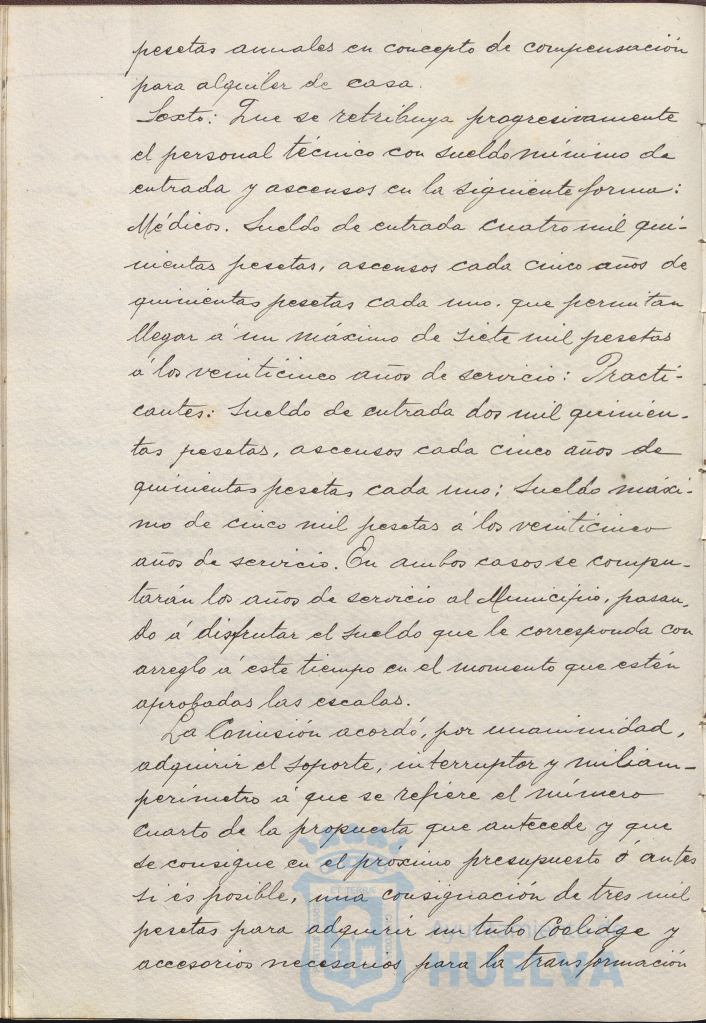 pesetas anuales en concepto de compensación
para alquiler de casa.
Sexto: Que se retribuya progresivamente
el personal técnico con sueldo mínimo de
entrada y ascensos en la siguiente forma:
Médicos. Sueldo de entrada cuatro mil qui-
nientas pesetas, ascensos cada cinco años de
quinientas pesetas cada uno, que permitan
llegar á un máximo de siete mil pesetas
á los veinticinco años de servicio: Practi-
cantes: Sueldo de entrada dos mil quinien-
tas pesetas, ascensos cada cinco años de
quinientas pesetas cada uno; Sueldo máxi-
mo de cinco mil pesetas á los veinticinco
años de servicio. En ambos casos se compu-
tarán los años de servicio al Municipio, pasan-
do á disfrutar el sueldo que le corresponda con
arreglo á este tiempo en el momento que estén
aprobadas las escalas.
La Comisión acordó, por unanimidad,
adquirir el soporte, interruptor y miliam-
perímetro á que se refiere el número
cuarto de la propuesta que antecede y que
se consigne en el próximo presupuesto ó antes
si és posible, una consignación de tres mil
pesetas para adquirir un tubo Coolidge y
accesorios necesarios para la transformación
Ayuntamiento de
HUELVA